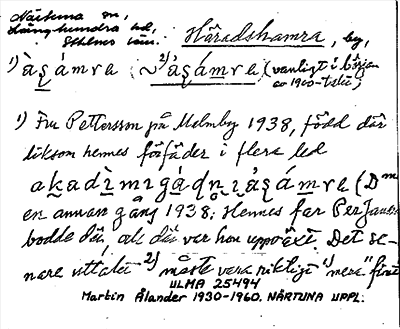 Närtuna sn,
Långhundra hd,
Sthlms län.
Häradshamra, by,
1) àşámra ~ 2) 'aşámra (vanligt i början
av 1900-talet;
1) Fru Pettersson från Malmby 1938, född där
liksom hennes förfäder i flera led
en annan gång 1938; Hennes far Per Jansson
bodde där, och där var hon uppväxt. Det se-
nare uttalet 2) måste vara riktigt "mera" fint
ULMA 25494
Martin Ålander 1930-1960. NÄRTUNA UPPL.